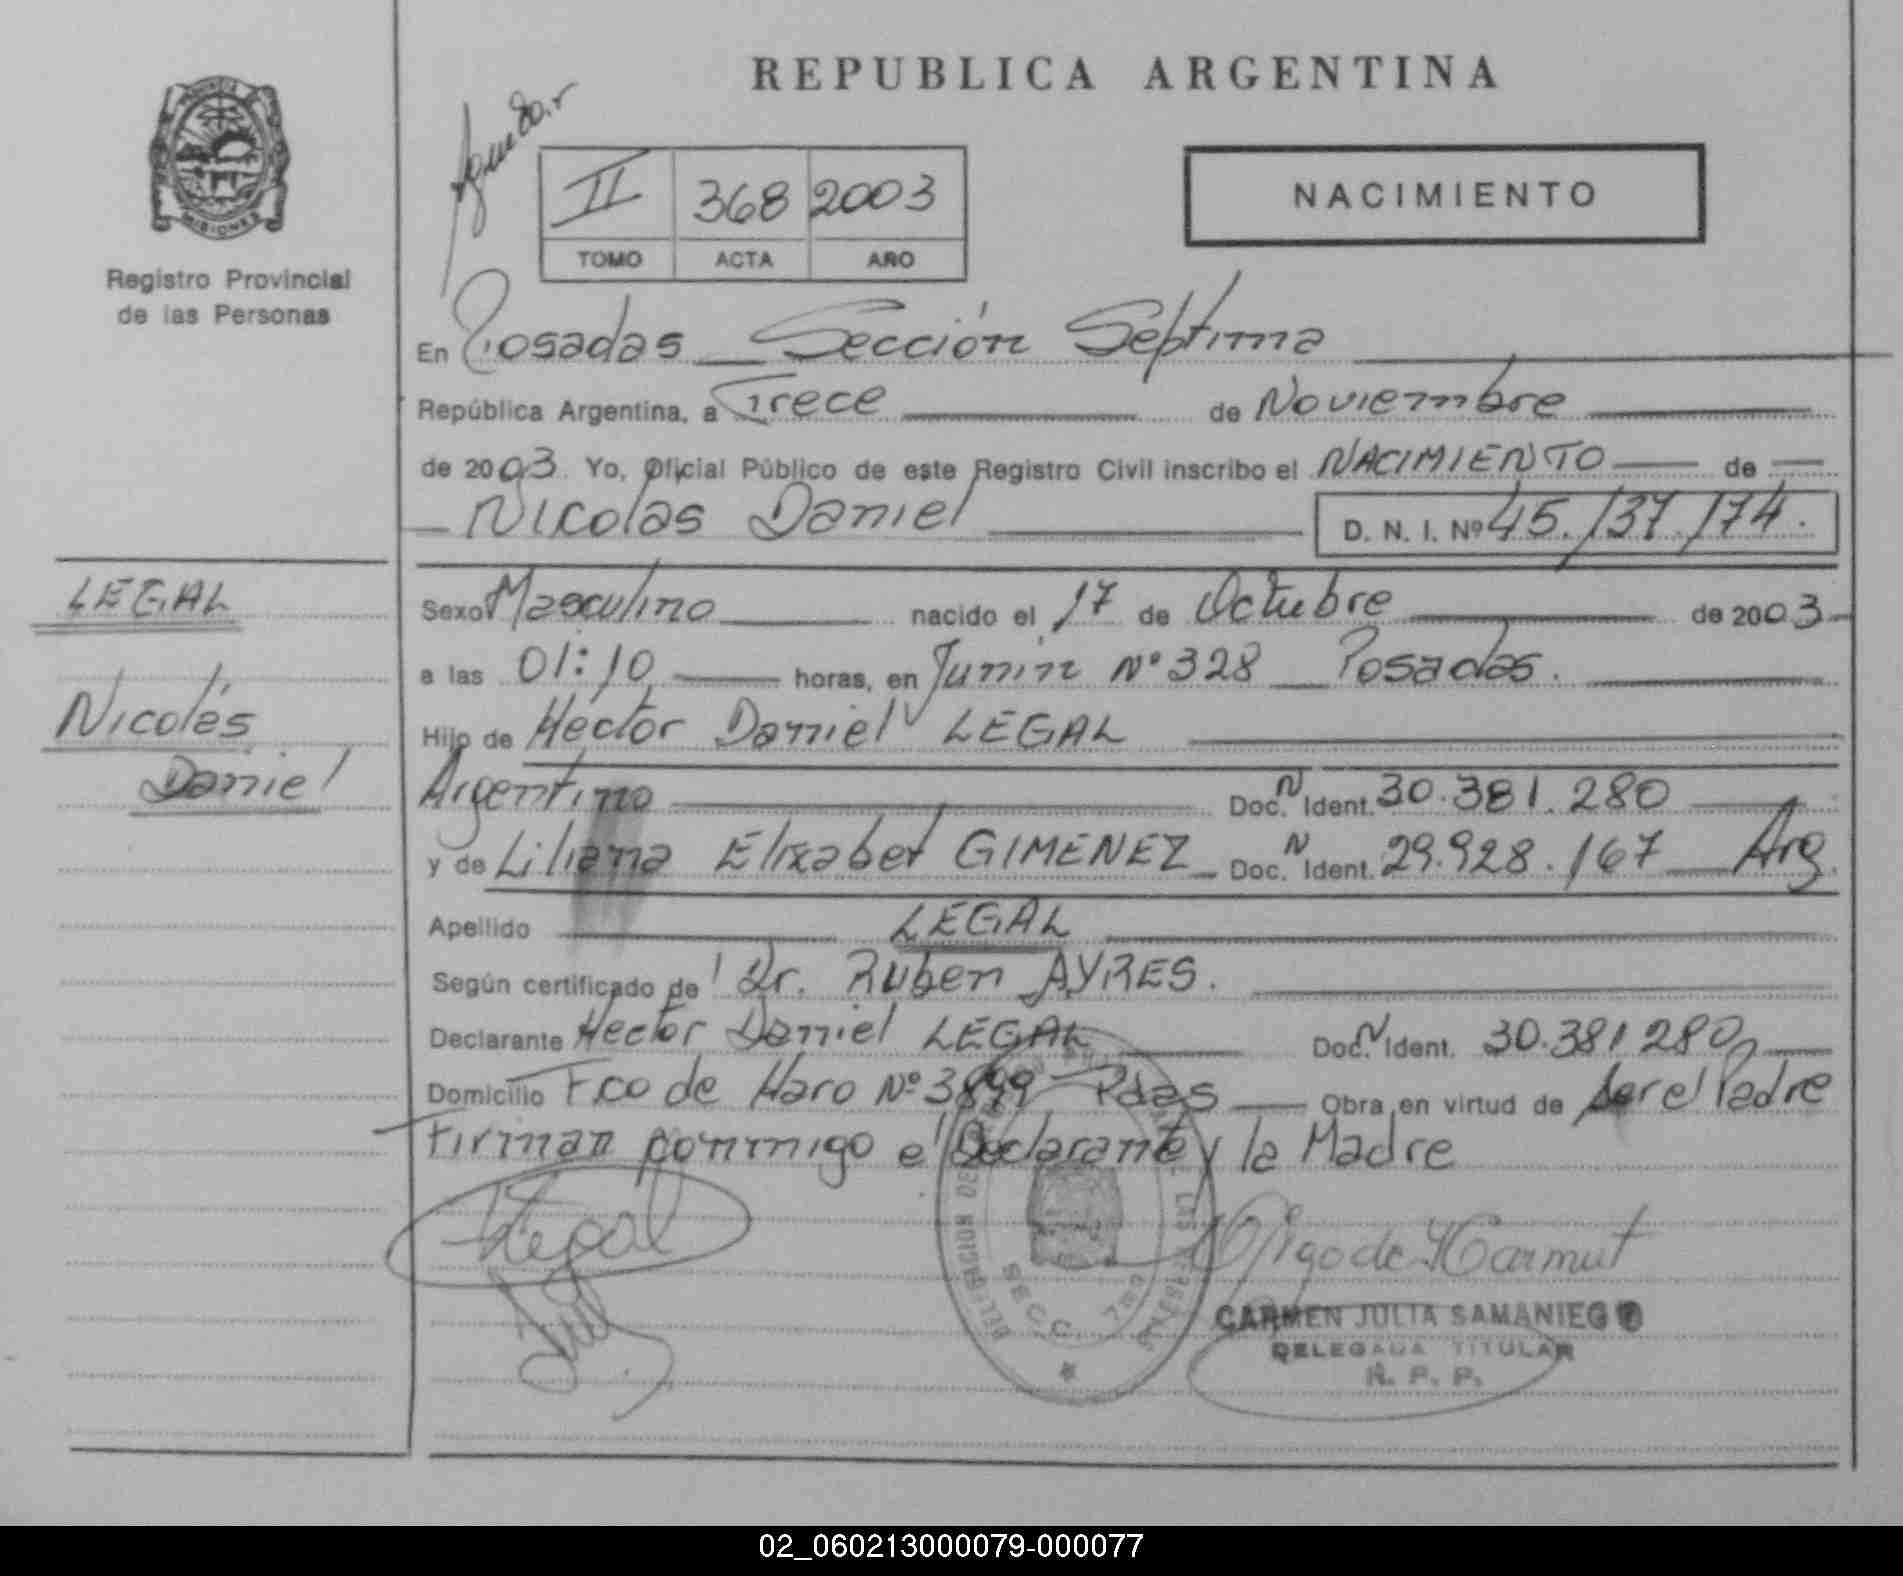 REPUBLICA ARGENTINA
MISIONES
Registro Provincial
de las Personas
II 368 2003
TOMO ACTA AÑO
NACIMIENTO
En Posadas Sección Septima
República Argentina, a Trece de Noviembre
de 2003. Yo, Oficial Público de este Registro Civil inscribo el NACIMIENTO de
Nicolas Daniel D. N. I. Nº 45.137.174.
LEGAL
Nicolás
Daniel
Sexo Masculino nacido el 17 de Octubre de 2003
a las 01:10 horas, en Junin Nº 328 Posadas.
Hijo de Hector Daniel LEGAL
Argentino Doc. N Ident. 30.381.280
y de Liliana Elizabet GIMENEZ Doc. N Ident. 29.928.167 Arg.
Apellido LEGAL
Según certificado de Dr. Ruben AYRES.
Declarante Hector Daniel LEGAL Doc. N Ident. 30.381280
Domicilio Fco de Haro Nº 3899 Pdas Obra en virtud de ser el Padre
Firman conmigo el Declarante y la Madre
Legal
DELEGACION DE LAS PERSONAS
SECC. 7ma
CARMEN JULIA SAMANIEGO
DELEGADA TITULAR
R. P. P.
02_060213000079-000077